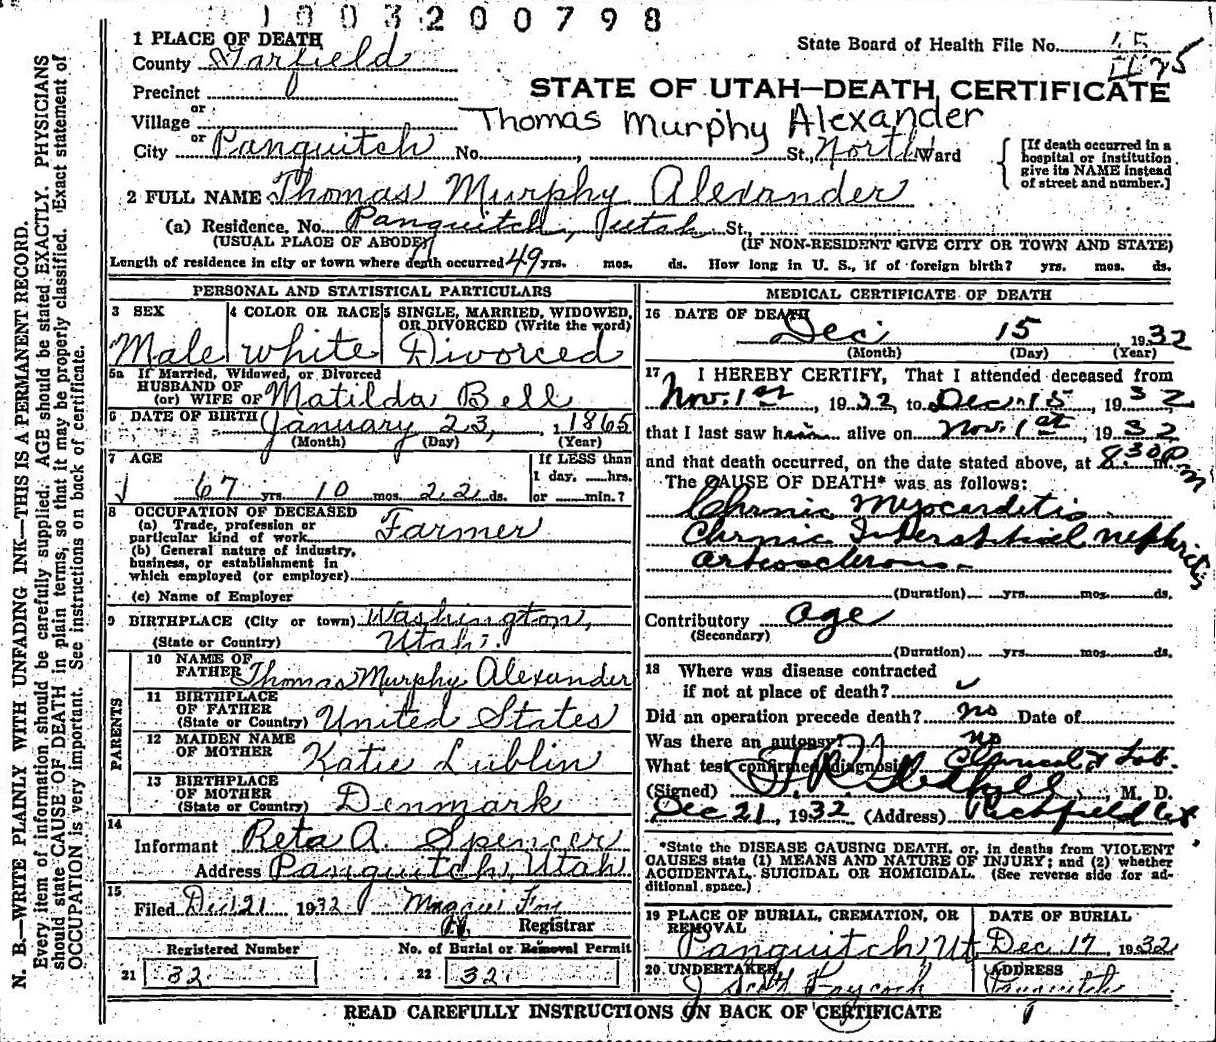 1003200798
1 PLACE OF DEATH
State Board of Health File No.
County Garfield
STATE OF UTAH—DEATH CERTIFICATE
Precinct
or
Village
Thomas Murphy Alexander
or
City Panguitch No. , St., North Ward
[If death occurred in a
hospital or institution
give its NAME instead
of street and number.]
2 FULL NAME Thomas Murphy Alexander
(a) Residence. No. Panguitch, Utah, St.,
(USUAL PLACE OF ABODE) (IF NON-RESIDENT GIVE CITY OR TOWN AND STATE)
Length of residence in city or town where death occurred 49 yrs. mos. ds. How long in U. S., if of foreign birth? yrs. mos. ds.
PERSONAL AND STATISTICAL PARTICULARS
3 SEX 4 COLOR OR RACE 5 SINGLE, MARRIED, WIDOWED,
OR DIVORCED (Write the word)
Male white Divorced
5a If Married, Widowed, or Divorced
HUSBAND OF
(or) WIFE OF Matilda Bell
6 DATE OF BIRTH January 23, 1 1865
(Month) (Day) (Year)
7 AGE If LESS than
1 day, hrs.
67 yrs. 10 mos. 22 ds. or min.?
8 OCCUPATION OF DECEASED
(a) Trade, profession or
particular kind of work Farmer
(b) General nature of industry,
business, or establishment in
which employed (or employer)
(c) Name of Employer
9 BIRTHPLACE (City or town) Washington,
(State or Country) Utah.
PARENTS
10 NAME OF
FATHER Thomas Murphy Alexander
11 BIRTHPLACE
OF FATHER
(State or Country) United States
12 MAIDEN NAME
OF MOTHER Katie Lublin
13 BIRTHPLACE
OF MOTHER
(State or Country) Denmark
14
Informant Reta A. Spencer
Address Panguitch, Utah
15
Filed Dec 21 1932
Registrar
Registered Number No. of Burial or Removal Permit
21 32 22 32
MEDICAL CERTIFICATE OF DEATH
16 DATE OF DEATH
Dec. 15 , 1932
(Month) (Day) (Year)
17 I HEREBY CERTIFY, That I attended deceased from
Nov. 1st , 1932, to Dec. 15 , 1932
that I last saw him alive on Nov. 1st , 1932
and that death occurred, on the date stated above, at 8:30 P m.
The CAUSE OF DEATH* was as follows:
Chronic Myocarditis
Chronic Interstitial nephritis
(Duration) yrs. mos. ds.
Contributory age
(Secondary)
(Duration) yrs. mos. ds.
18 Where was disease contracted
if not at place of death?
Did an operation precede death? no Date of
Was there an autopsy? no
What test confirmed diagnosis Clinical & Lab.
(Signed) M. D.
Dec 21 , 1932 (Address) Richfield Ut
*State the DISEASE CAUSING DEATH, or, in deaths from VIOLENT
CAUSES state (1) MEANS AND NATURE OF INJURY; and (2) whether
ACCIDENTAL, SUICIDAL OR HOMICIDAL. (See reverse side for ad-
ditional space.)
19 PLACE OF BURIAL, CREMATION, OR
REMOVAL DATE OF BURIAL
Panguitch, Ut Dec 17 , 1932
20 UNDERTAKER ADDRESS
Panguitch
READ CAREFULLY INSTRUCTIONS ON BACK OF CERTIFICATE
N. B.—WRITE PLAINLY WITH UNFADING INK—THIS IS A PERMANENT RECORD.
Every item of information should be carefully supplied. AGE should be stated EXACTLY. PHYSICIANS
should state CAUSE OF DEATH in plain terms, so that it may be properly classified. Exact statement of
OCCUPATION is very important. See instructions on back of certificate.